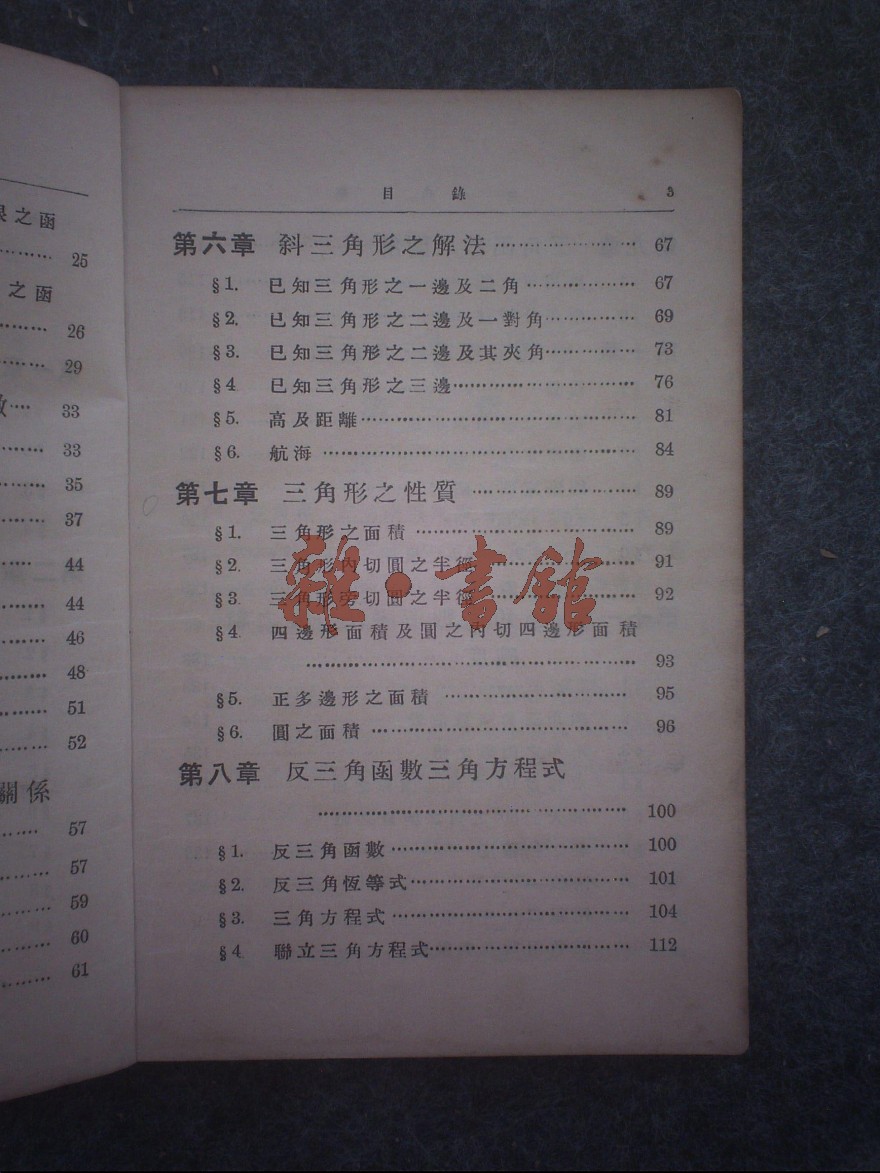 之函
25
之函
26
29
33
33
35
37
44
44
46
48
51
52
關係
57
57
59
60
61
目錄 3
第六章 斜三角形之解法 67
§1. 已知三角形之一邊及二角 67
§2. 已知三角形之二邊及一對角 69
§3. 已知三角形之二邊及其夾角 73
§4 已知三角形之三邊 76
§5. 高及距離 81
§6. 航海 84
第七章 三角形之性質 89
§1. 三角形之面積 89
§2. 三角形內切圓之半徑 91
§3. 三角形旁切圓之半徑 92
§4. 四邊形面積及圓之內切四邊形面積
93
§5. 正多邊形之面積 95
§6. 圓之面積 96
第八章 反三角函數三角方程式
100
§1. 反三角函數 100
§2. 反三角恆等式 101
§3. 三角方程式 104
§4 聯立三角方程式 112
雜·書館